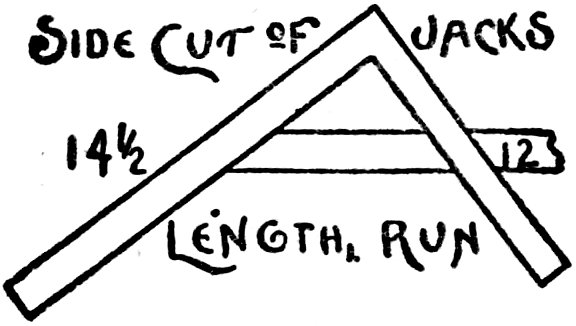 SIDE CUT OF JACKS
14 1/2 12
LENGTH, RUN